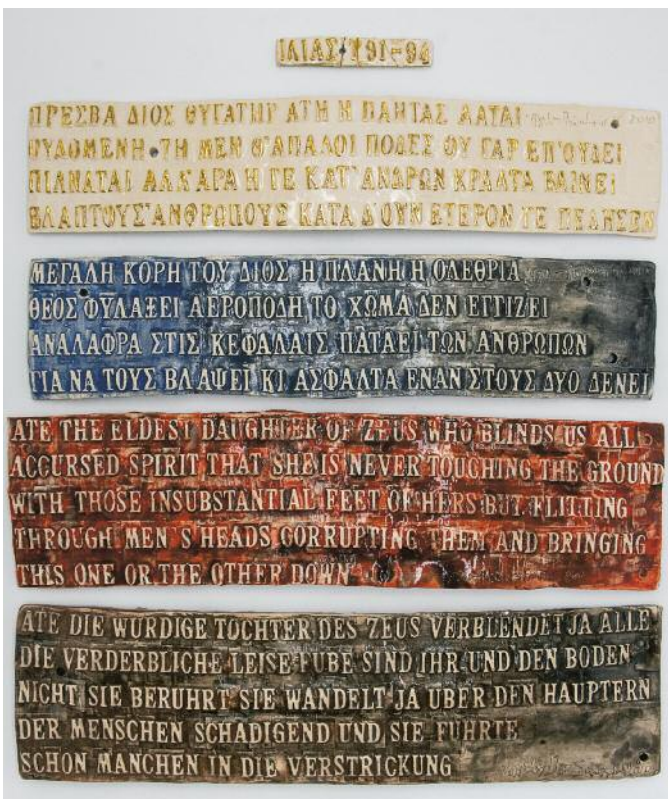 ΙΛΙΑΣ Τ 91-94
ΠΡΕΣΒΑ ΔΙΟΣ ΘΥΓΑΤΗΡ ΑΤΗ Η ΠΑΝΤΑΣ ΑΑΤΑΙ
ΟΥΛΟΜΕΝΗ ΤΗ ΜΕΝ Θ'ΑΠΑΛΟΙ ΠΟΔΕΣ ΟΥ ΓΑΡ ΕΠ'ΟΥΔΕΙ
ΠΙΛΝΑΤΑΙ ΑΛΛ'ΑΡΑ Η ΓΕ ΚΑΤ' ΑΝΔΡΩΝ ΚΡΑΑΤΑ ΒΑΙΝΕΙ
ΒΛΑΠΤΟΥΣ'ΑΝΘΡΩΠΟΥΣ ΚΑΤΑ Δ'ΟΥΝ ΕΤΕΡΟΝ ΓΕ ΠΕΔΗΣΕΝ
ΜΕΓΑΛΗ ΚΟΡΗ ΤΟΥ ΔΙΟΣ Η ΠΛΑΝΗ Η ΟΛΕΘΡΙΑ
ΘΕΟΣ ΦΥΛΑΞΕΙ ΑΕΡΟΠΟΔΗ ΤΟ ΧΩΜΑ ΔΕΝ ΕΓΓΙΖΕΙ
ΑΝΑΛΑΦΡΑ ΣΤΙΣ ΚΕΦΑΛΑΙΣ ΠΑΤΑΕΙ ΤΩΝ ΑΝΘΡΩΠΩΝ
ΓΙΑ ΝΑ ΤΟΥΣ ΒΛΑΨΕΙ ΚΙ ΑΣΦΑΛΤΑ ΕΝΑΝ ΣΤΟΥΣ ΔΥΟ ΔΕΝΕΙ
ATE THE ELDEST DAUGHTER OF ZEUS WHO BLINDS US ALL
ACCURSED SPIRIT THAT SHE IS NEVER TOUCHING THE GROUND
WITH THOSE INSUBSTANTIAL FEET OF HERS BUT FLITTING
THROUGH MEN'S HEADS CORRUPTING THEM AND BRINGING
THIS ONE OR THE OTHER DOWN
ATE DIE WURDIGE TOCHTER DES ZEUS VERBLENDET JA ALLE
DIE VERDERBLICHE LEISE FUBE SIND IHR UND DEN BODEN
NICHT SIE BERUHRT SIE WANDELT JA UBER DEN HAUPTERN
DER MENSCHEN SCHADIGEND UND SIE FUHRTE
SCHON MANCHEN IN DIE VERSTRICKUNG